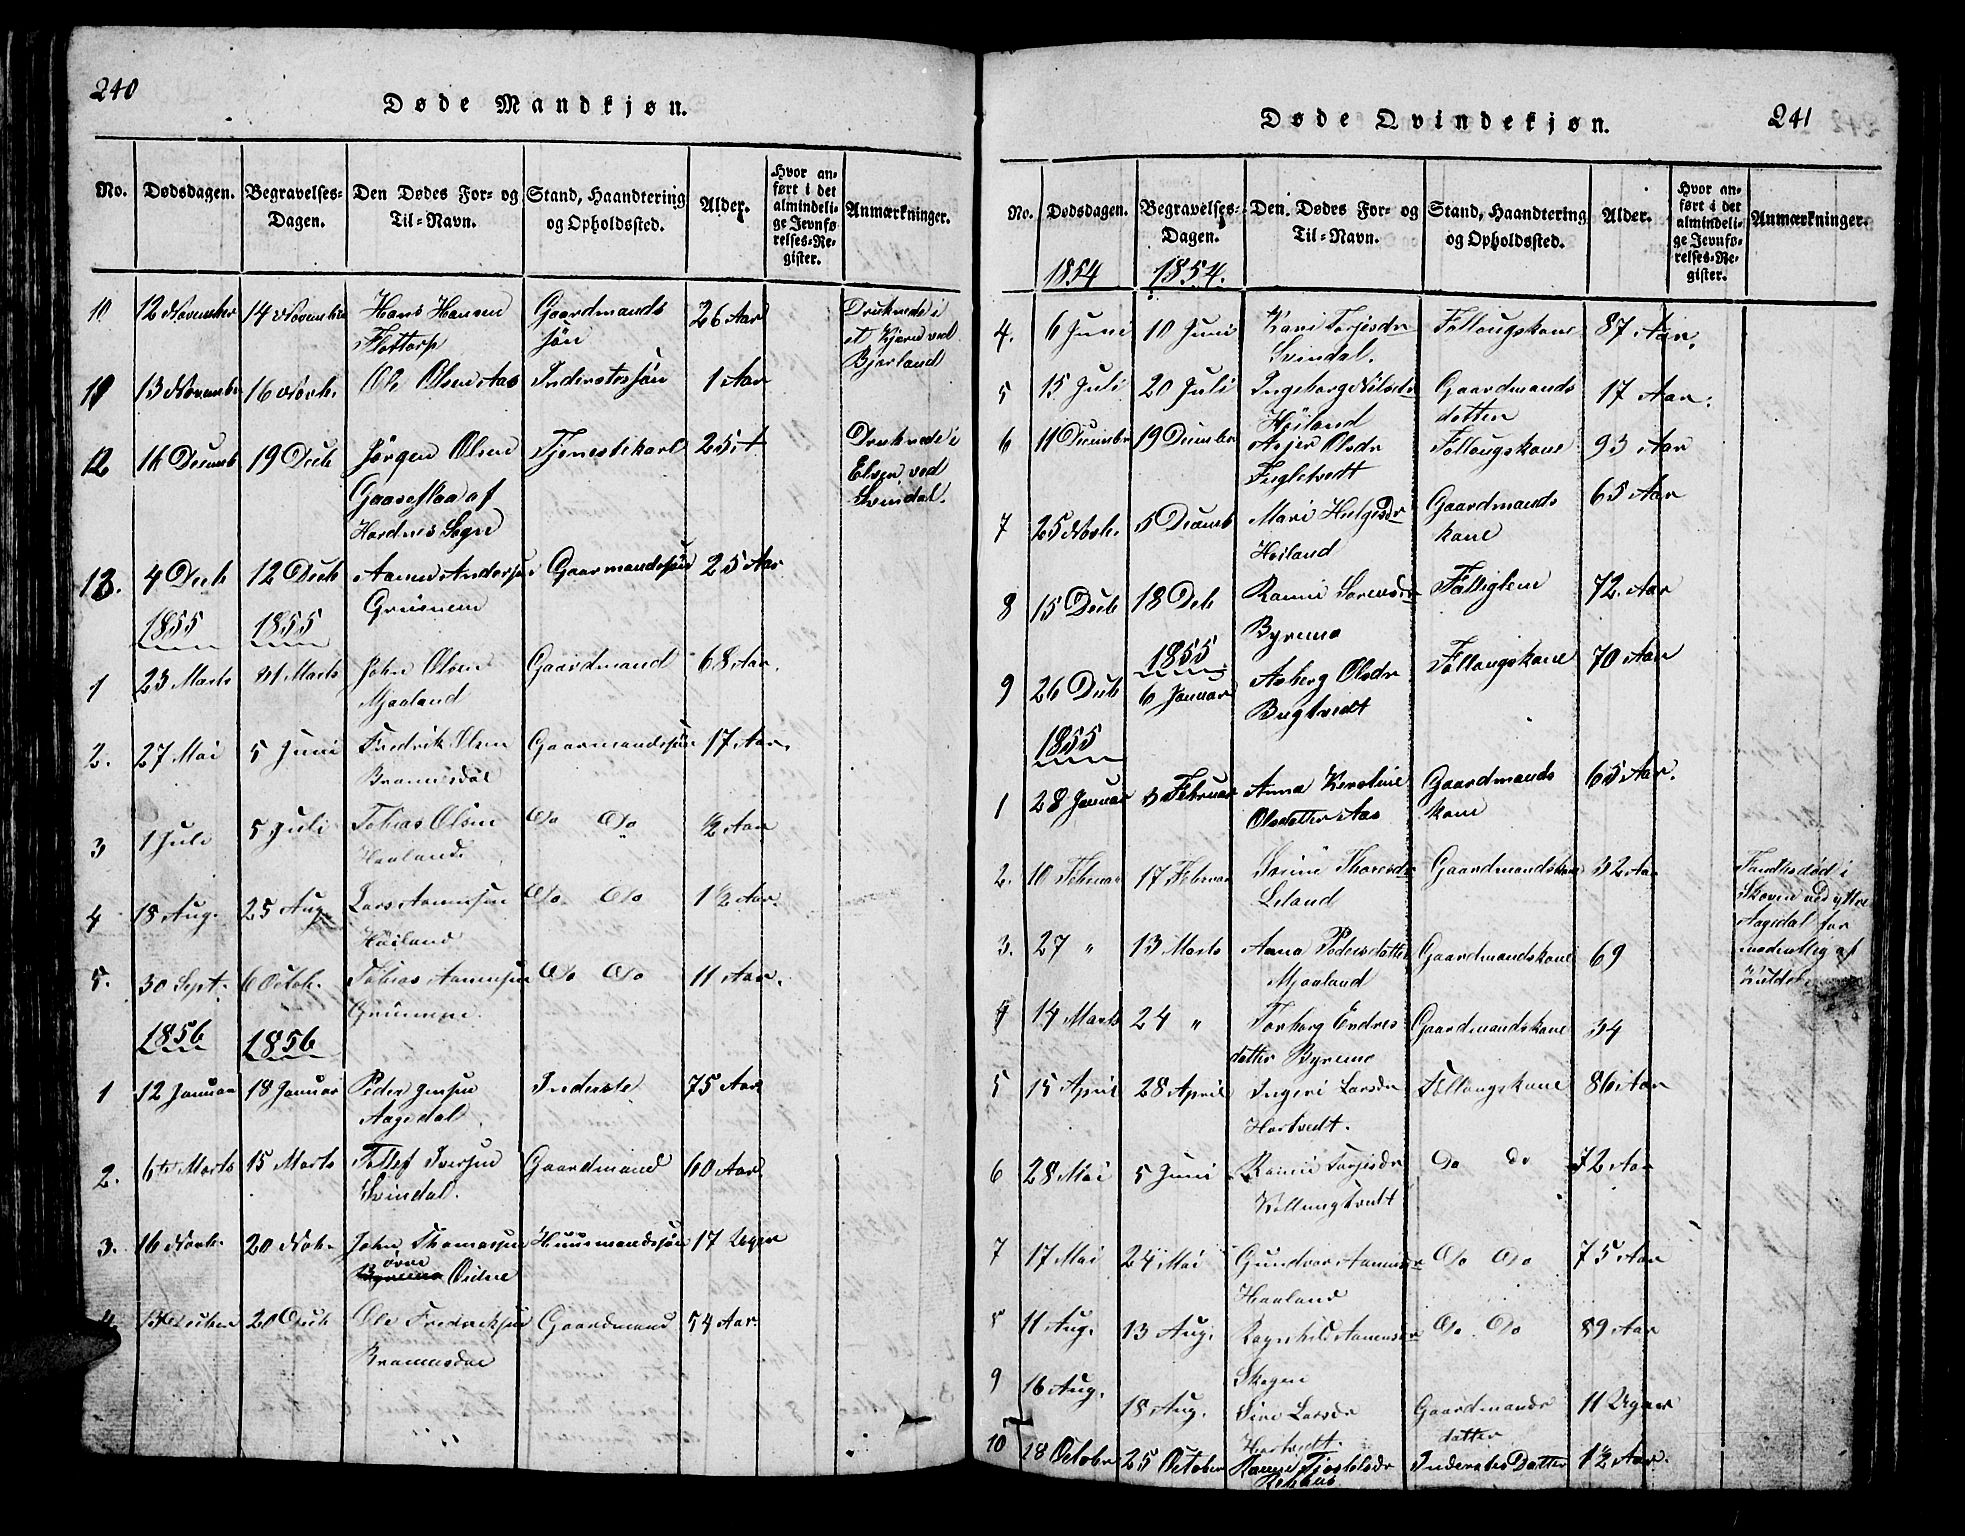 240
Døde Mandkjøn.
No. Dødsdagen. Begravelses- Den Dødes For- og Stand, Haandtering Alder. Hvor an- Anmærkninger.
Dagen. Til-Navn. og Opholdssted. ført i det
almindeli-
ge Jevnfø-
relses-Re-
gister.
10 12 November 14 November Hans Hansen Gaardmands 26 Aar Druknede i
Flottorp søn et Kjern ved
Bjerland
11 13 November 16 Novb. Ole Olsen Aas Inderstessøn 1 Aar
12 16 Decemb 19 Decb Jørgen Olsen Tjenestekarl 25 A Druknede i
Gaaseflaa af Elven ved
Hordnes Sogn Svindal.
13. 4 Decb 12 Decb Aanen Andersen Gaarmandssøn 25 Aar
1855 1855
1 23 Marts 31 Marts John Olsen Gaardmand 68 Aar.
Mjaaland
2. 27 Mai 5 Juni Fredrik Olsen Gaarmandssøn 17 Aar.
3 1 Juli 5 Juli Tobias Olsen Do Do ½ Aar
Haaland
4 18 Aug. 25 Aug. Lars Aanensen Do Do 1½ Aar.
Høiland
5. 30 Sept. 6 Octob. Tobias Aanensen Do Do 11 Aar.
1856 1856
1 12 Januar 18 Januar Peder Jensen Inderste 75 Aar
Aagedal
2. 6te Marts 15 Marts Tellef Iversen Gaardmand 60 Aar.
Svindal.
3. 16 Novb. 20 Nob. John Thomassen Huusmandssøn 17 Uger
øvre
Byremo Øidne
4 13 Decber 20 Decb Ole Fredriksen Gaardmand 54 Aar.
Døde Qvindekjøn. 241
No. Dødsdagen. Begravelses- Den Dødes For- og Stand, Haandtering Alder. Hvor an- Anmærkninger.
Dagen. Til-Navn. og Opholdssted. ført i det
almindeli-
ge Jevnfø-
relses-Re-
gister.
1854 1854.
4. 6 Juni 10 Juni Kari Terjesdr Føllougskone 87 Aar.
Svindal.
5 15 Juli 20 Juli Ingeborg Nilsdr Gaardmands 17 Aar.
Høiland datter
6 11 December 19 December Asjer Olsdr Føllougskone 93 Aar
Fugletvedt
7 25 Novb. 5 Decemb Mari Helgesdr Gaardmands 65 Aar
Høiland kone
8 15 Decb 18 Deb Ramie Sørensdr Fattiglem 72. Aar
Byremo
1855
9 26 Decb 6 Januar Asberg Olsdr Føllougskone 70 Aar
1855
1 28 Januar 3 Februar Anna Kerstine Gaardmands 65 Aar.
Olsdatter Aas kone
2. 10 Februar 17 Februar Sirine Thoresdr Gaardmandskone 32 Aar Fandtes død i
Leland Skoven ved ytre
Aagedal for
modentlig af
Kulde
3. 27 " 13 Marts Anna Pedersdatter Gaardmandskone 69
Mjaaland
4 14 Marts 24 " Torborg Endres Gaardmandskone 34
datter Byremo
5 15 April 28 April Ingeri Larsdr Føllougskone 86 Aar
Hortvedt.
6 28 Mai 5 Juni Ramie Terjesdr Do do 72 Aar
7 17 Mai 24 Mai Gundvor Aanensdr Do Do 75 Aar
Haaland
8 11 Aug. 13 Aug. Ragnhild Aanensdr Do Do 89 Aar
Skogen
9 16 Aug. 18 Aug. Sire Larsdr Gaardmands 11 Uger
Hortvedt. datter
10 18 October 25 October Hanne Tjostelsdr Inderstes Datter 1½ Aar.